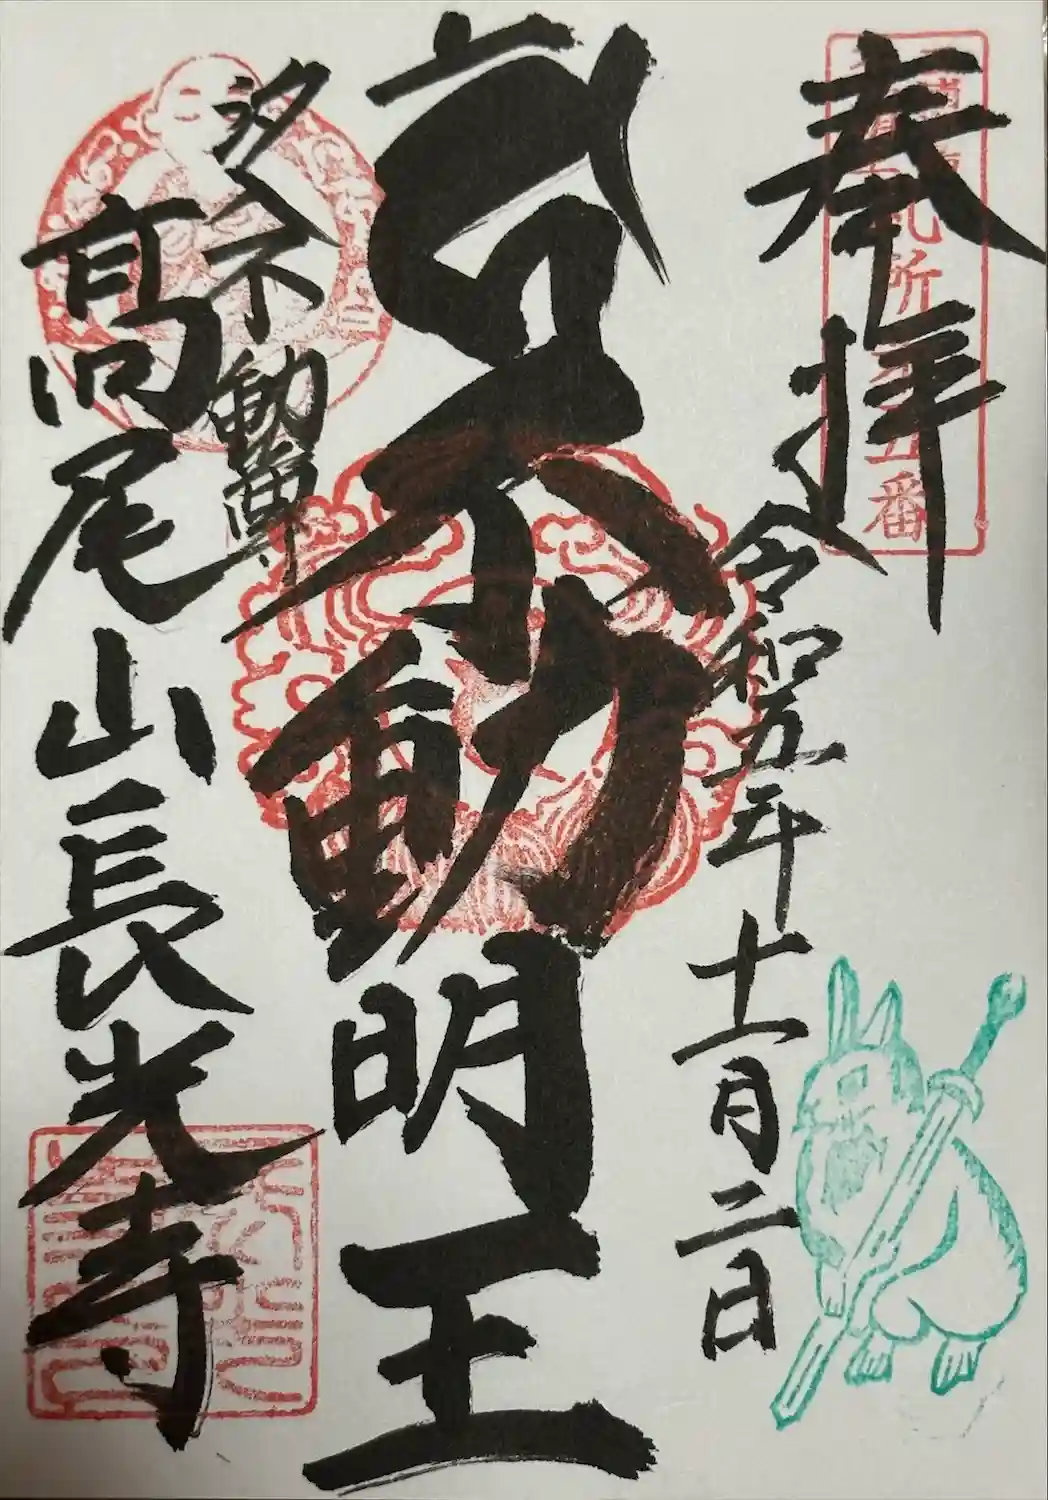 奉拝
令和五年十一月二日
不動明王
汐入不動尊
高尾山長光寺